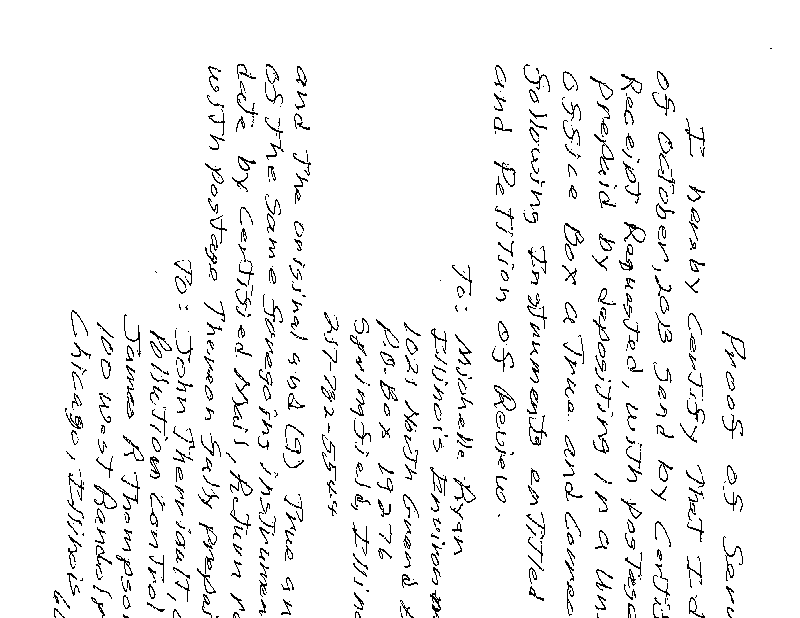 Proof of Serv
I hereby Certify That I d
of October, 2013 Send by Certif
Receipt Requested, with postage
prepaid by depositing in a Un
office Box a True and Correc
following Instruments entitled
and Petition of Review.
To: Michelle Ryan
Illinois Environm
1021 North Grand E
P.O. Box 19276
Springfield, Illino
217-782-5544
and The original and (9) True an
of the same foregoing instrumen
date by Certified Mail, Return re
with postage Thereon fully prepai
To: John Therriault, C
Pollution Control
James R Thompson
100 West Randolph
Chicago, Illinois
60